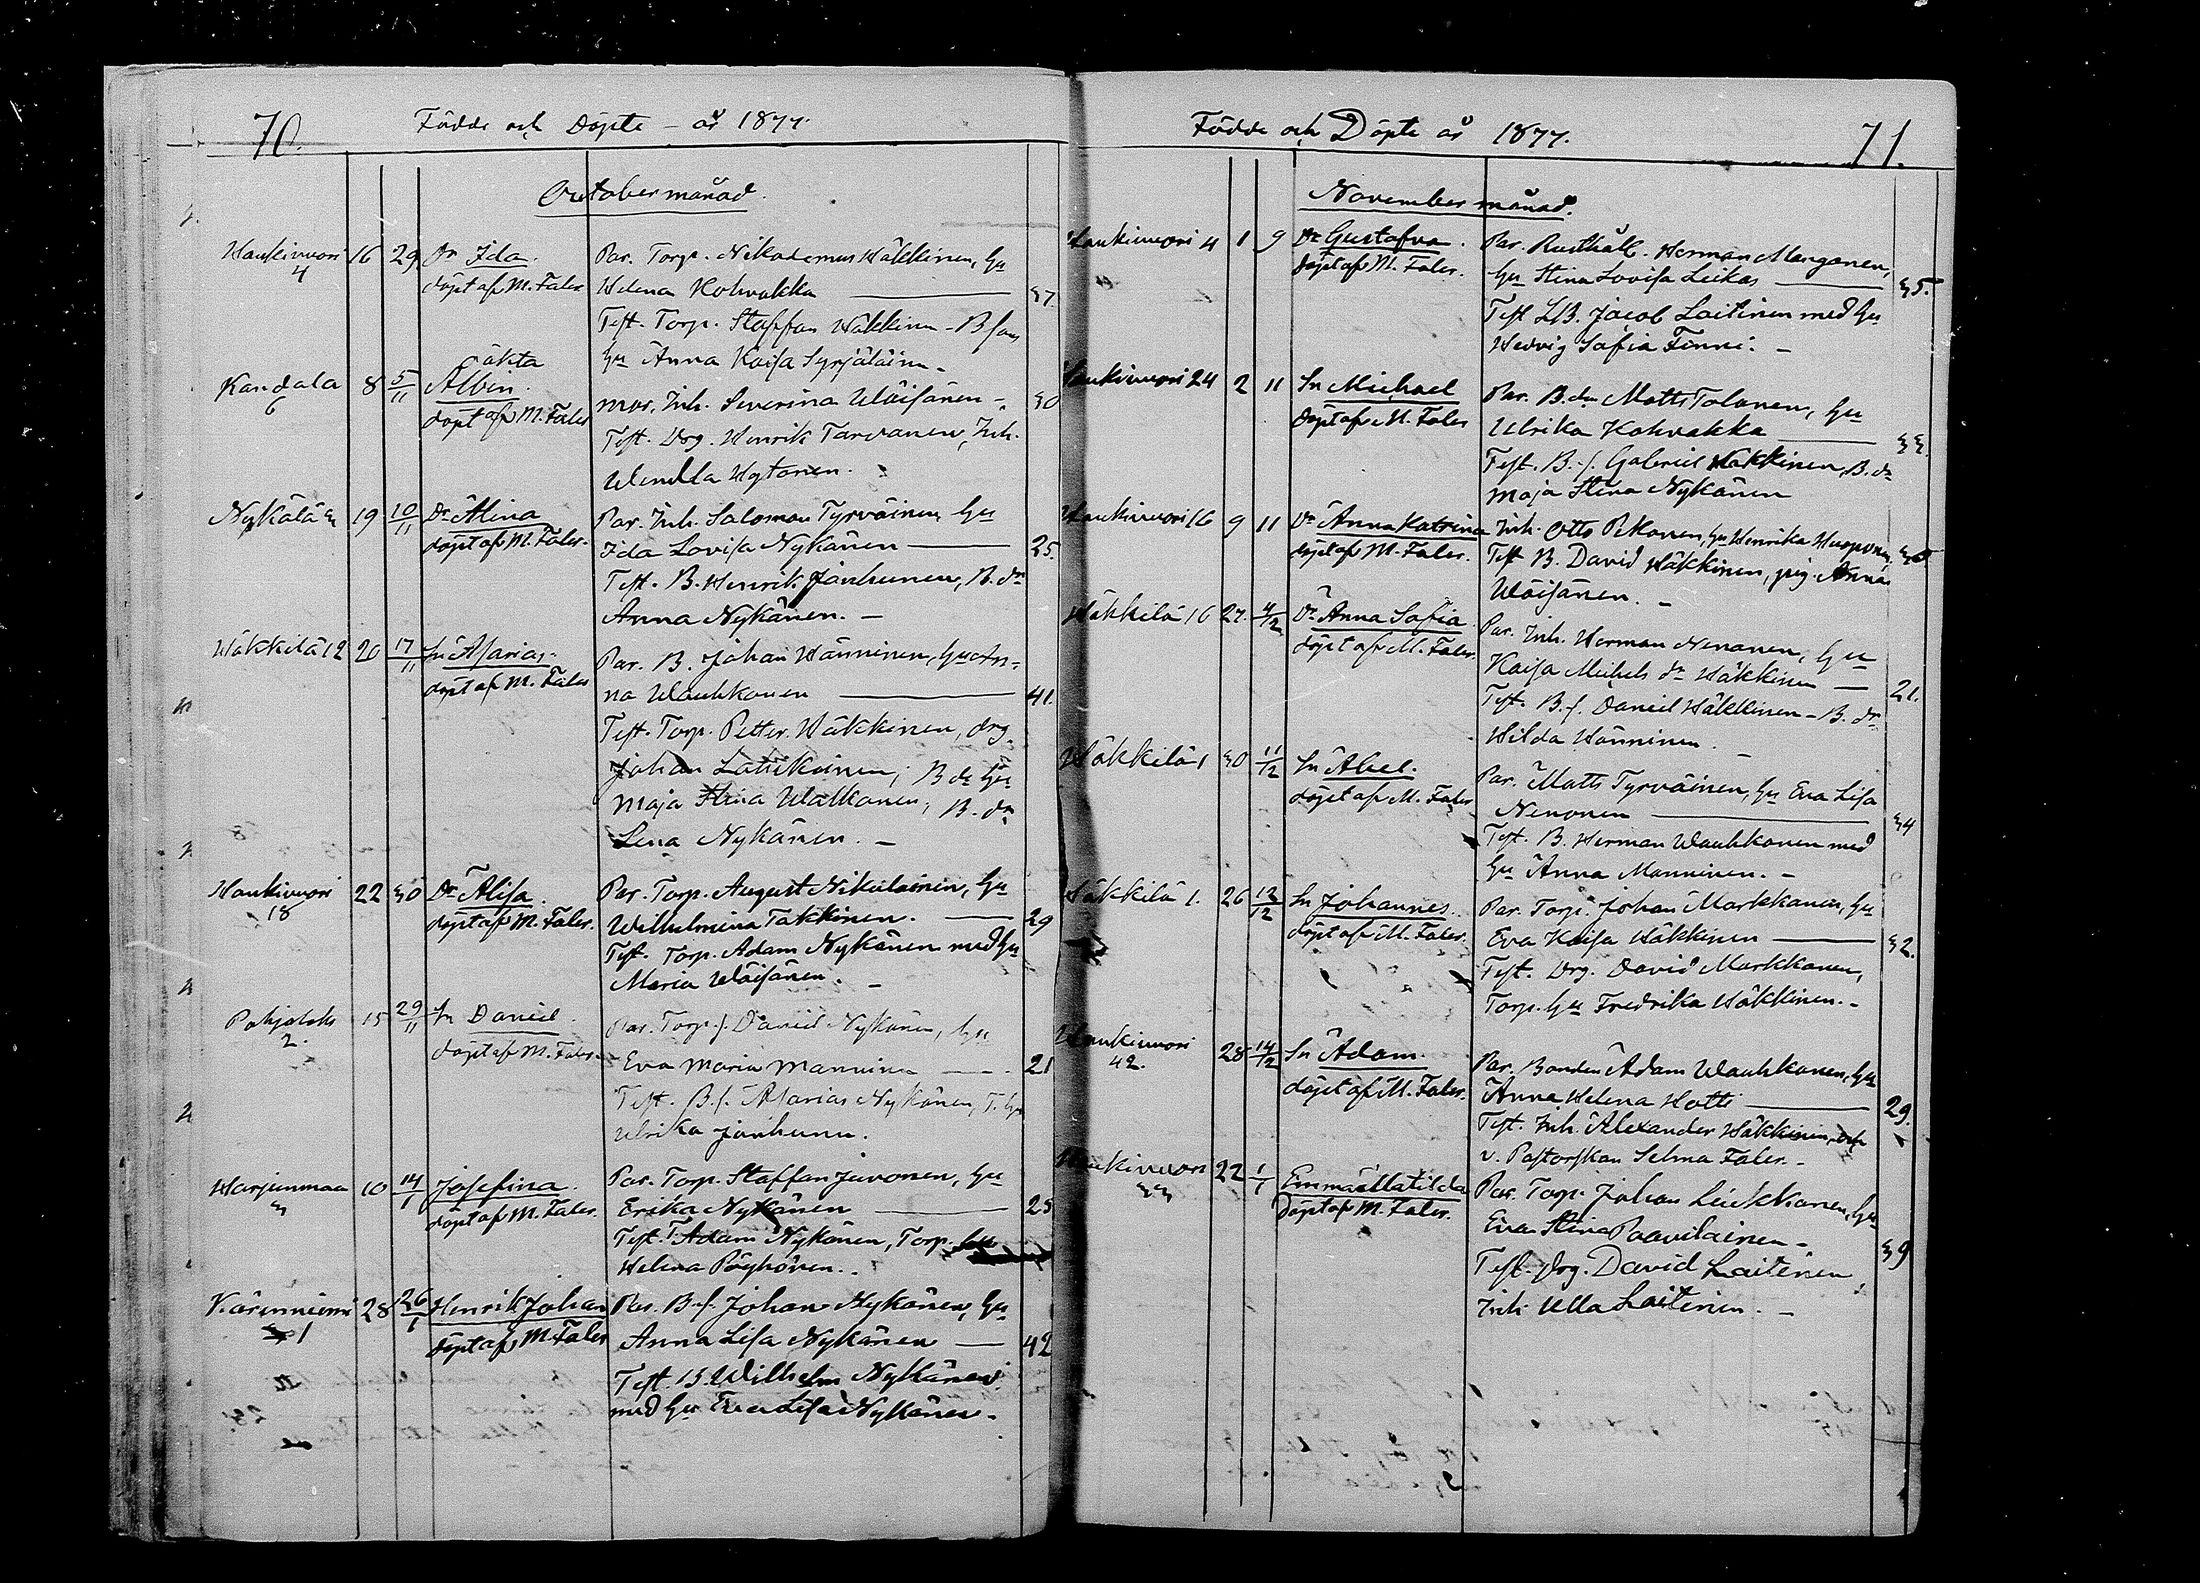 70.
Födde och Döpte – år 1877.
October månad.
Haukivuori 4 16 29 Dr Ida. Par. Torp. Nikodemus Häkkinen, Hu
döpt af M. Faler Helena Kohvakka — 37.
Test. Torp. Staffan Häkkinen – B
Hu Anna Kaisa Syrjäläinen
Kandala 6 8 5/11 oäkta Albin. mor, Inh. Severina Wäisänen – 30
döpt af M. Faler Test. Drg. Henrik Tarvanen, Inh.
Wendla Hytönen.
Nykälä 19 10/11 Dr Alina Par. Inh. Salomon Tyrväinen, Hu
döpt af M. Faler. Ida Lovisa Nykänen — 25.
Test. B. Henrik Janhunen, B. dr
Anna Nykänen. –
Häkkilä 12 20 17/11 Sn Asarias. Par. B. Johan Hänninen, Hu An-
döpt af M. Faler na Wauhkonen — 41.
Test. Torp. Petter Häkkinen, drg
Johan Laukkainen, B de Hu
Maja Stina Walkonen, B. dr
Lena Nykänen. –
Haukivuori 18 22 30 Dr Alisa. Par. Torp. August Nikulainen, Hu
döpt af M. Faler. Wilhelmina Takkinen. — 29
Test. Torp. Adam Nykänen med Hu
Maria Wäisänen. –
Pohjolah. 2. 15 29/11 Sn Daniel. Par. Torp. s. Daniel Nykänen, Hu
döpt af M. Faler. Eva Maria Manninen — 21
Test. B.s. Asarias Nykänen, T. Hu
Ulrika Janhunen.
Harjunmaa 3 10 14/1 Josefina. Par. Torp. Staffan Juvonen, Hu
döpt af M. Faler. Erika Nykänen — 25
Test. T. Adam Nykänen, Torp. Hu
Helena Pöyhönen. –
Kärenniemi 1 28 26/1 Henrik Johan Par. B.s. Johan Nykänen, Hu
döpt af M. Faler Anna Lisa Nykänen — 42
Test. B. Wilhelm Nykänen
med Hu Eva Lisa Nykänen –
Födde och Döpte år 1877.
71.
November månad.
Haukivuori 4 1 9 Dr Gustafva. Par. Rusthåll. Herman Manganen,
döpt af M. Faler. Hu Stina Lovisa Leikas — 35.
Test LB. Jacob Laitinen med Hu
Hedvig Sofia Finni. –
Haukivuori 24 2 11 Sn Michael Par. B.dn Matts Tolanen, Hu
döpt af M. Faler Ulrika Kohvakka — 33.
Test. B.s. Gabriel Häkkinen, B. dr
Maja Stina Nykänen
Haukivuori 16 9 11 Dr Anna Katrina Inh. Otto Pekonen, Hu Henrika Huupponen
döpt af M. Faler. Test B. David Häkkinen, pig. Anna
Wäisänen. –
Häkkilä 16 27. 4/12 Dr Anna Sofia. Par. Inh. Herman Nenonen, Hu
döpt af M. Faler. Kaisa Michels dr Häkkinen — 21.
Test. B.s. Daniel Häkkinen – B. dr
Hilda Hänninen. –
Häkkilä 1 30 11/12 Sn Abel. Par. Matts Tyrväinen, Hu Eva Lisa
döpt af M. Faler Nenonen — 34
Test. B. Herman Wauhkonen med
Hu Anna Manninen. –
Häkkilä 1. 26 12/12 Sn Johannes. Par. Torp. Johan Markkanen, Hu
döpt af M. Faler. Eva Kaisa Häkkinen — 32.
Test. Drg. David Markkanen,
Torp. Hu Fredrika Häkkinen. –
Haukivuori 42. 28 14/12 Sn Adam. Par. Bonden Adam Wauhkonen, Hu
döpt af M. Faler. Anna Helena Hotti — 29.
Test. Inh. Alexander Häkkinen, och
v. Pastorskan Selma Faler. –
Haukivuori 33 22 1/1 Emma Matilda Par. Torp. Johan Liukkonen, Hu
döpt af M. Faler. Eva Stina Paavilainen – 39
Test. Drg. David Laitinen,
Inh. Ulla Laitinen. –